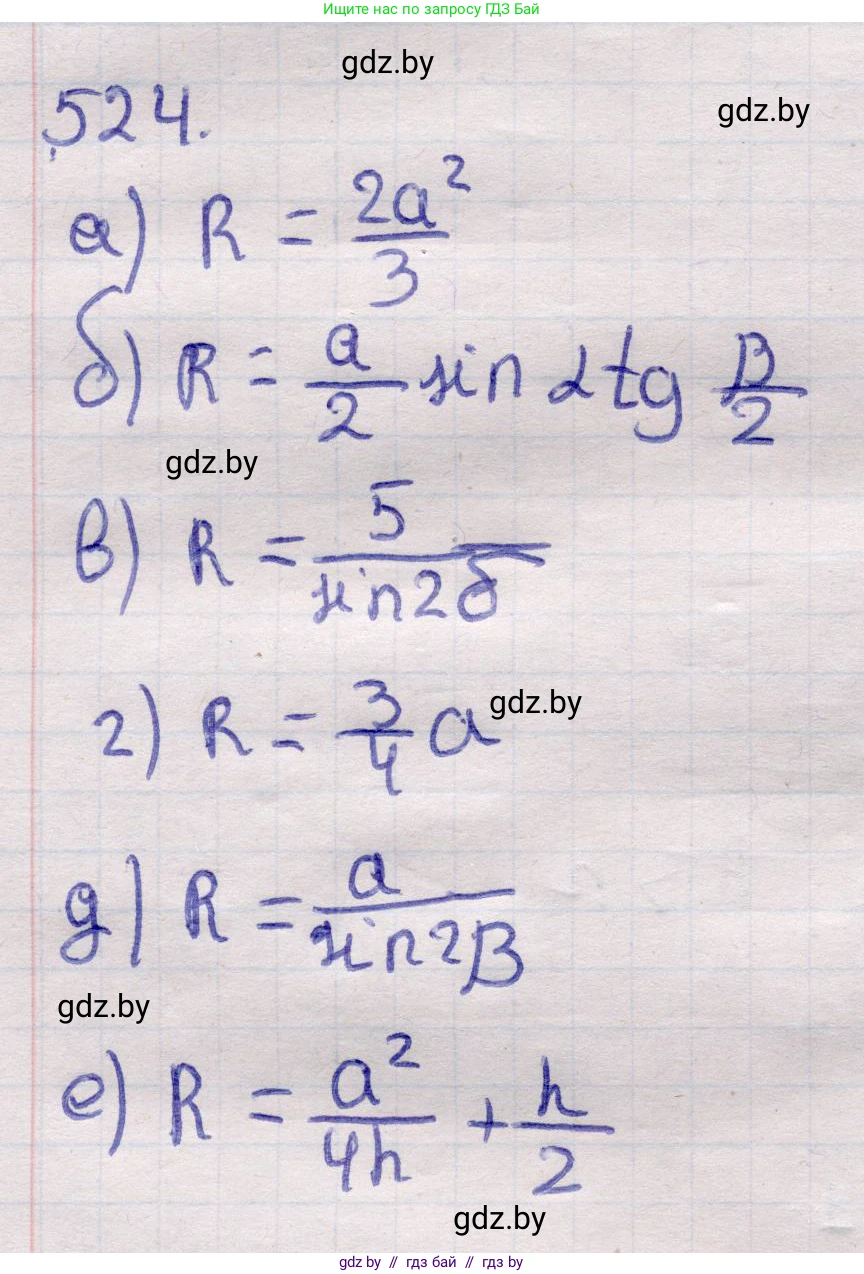 Ищите нас по запросу ГДЗ Бай
gdz.by
524.
gdz.by
а) R = 2a²/3
б) R = a/2 sin α tg β/2
gdz.by
в) R = 5/sin2б
г) R = 3/4 a
gdz.by
д) R = a/sin2β
gdz.by
е) R = a²/4h + h/2
gdz.by
gdz.by // гдз бай // гдз by